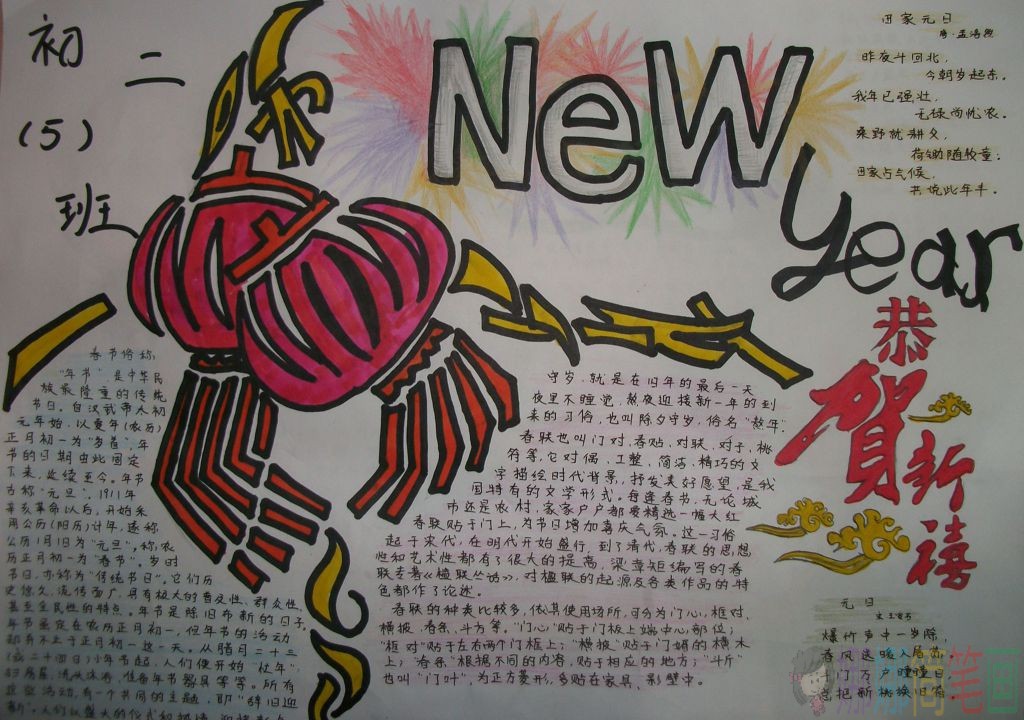 初二
(5)
班
New
Year
田家元日
唐·孟浩然
昨夜斗回北，
今朝岁起东。
我年已强壮，
无禄尚忧农。
桑野就耕父，
荷锄随牧童。
田家占气候，
共说此年丰。
恭
贺
新
禧
春节俗称
"年节"是中华民
族最隆重的传统
节日。自汉武帝太初
元年始，以夏年(农历)
正月初一为"岁首"，年
节的日期由此固定
下来，延续至今。年节
古称"元旦"。1911年
辛亥革命以后，开始采
用公历(阳历)计年，遂称
公历1月1日为"元旦"，称农
历正月初一为"春节"。岁时
节日，亦称为"传统节日"。它们历
史悠久，流传面广，具有极大的普及性、群众性、
甚至全民性的特点。年节是除旧布新的日子。
年节虽定在农历正月初一，但年节的活动
却并不止于正月初一这一天。从腊月二十三
(或二十四日)小年节起，人们便开始"忙年"：
扫房屋、洗头沐浴、准备年节器具等等。所有
这些活动，有一个共同的主题，即"辞旧迎
新"。人们以盛大的仪式和热情，迎接新
守岁，就是在旧年的最后一天
夜里不睡觉，熬夜迎接新一年的到
来的习俗，也叫除夕守岁，俗名"熬年"。
春联也叫门对、春贴、对联、对子、桃
符等，它对偶、工整、简洁、精巧的文
字描绘时代背景，抒发美好愿望，是我
国特有的文学形式。每逢春节，无论城
市还是农村，家家户户都要精选一幅大红
春联贴于门上，为节日增加喜庆气氛。这一习俗
起于宋代，在明代开始盛行，到了清代，春联的思想
性和艺术性都有了很大的提高，梁章矩编写的春
联专著《槛联丛话》，对楹联的起源及各类作品的特
色都作了论述。
春联的种类比较多，依其使用场所，可分为门心、框对、
横披、春条、斗方等。"门心"贴于门板上端中心部位；
"框对"贴于左右两个门框上；"横披"贴于门楣的横木
上；"春条"根据不同的内容，贴于相应的地方；"斗斤"
也叫"门叶"，为正方菱形，多贴在家具、影壁中。
元日
爆竹声中一岁除，
春风送暖入屠苏
门万户曈曈日
总把新桃换旧符。
简笔画